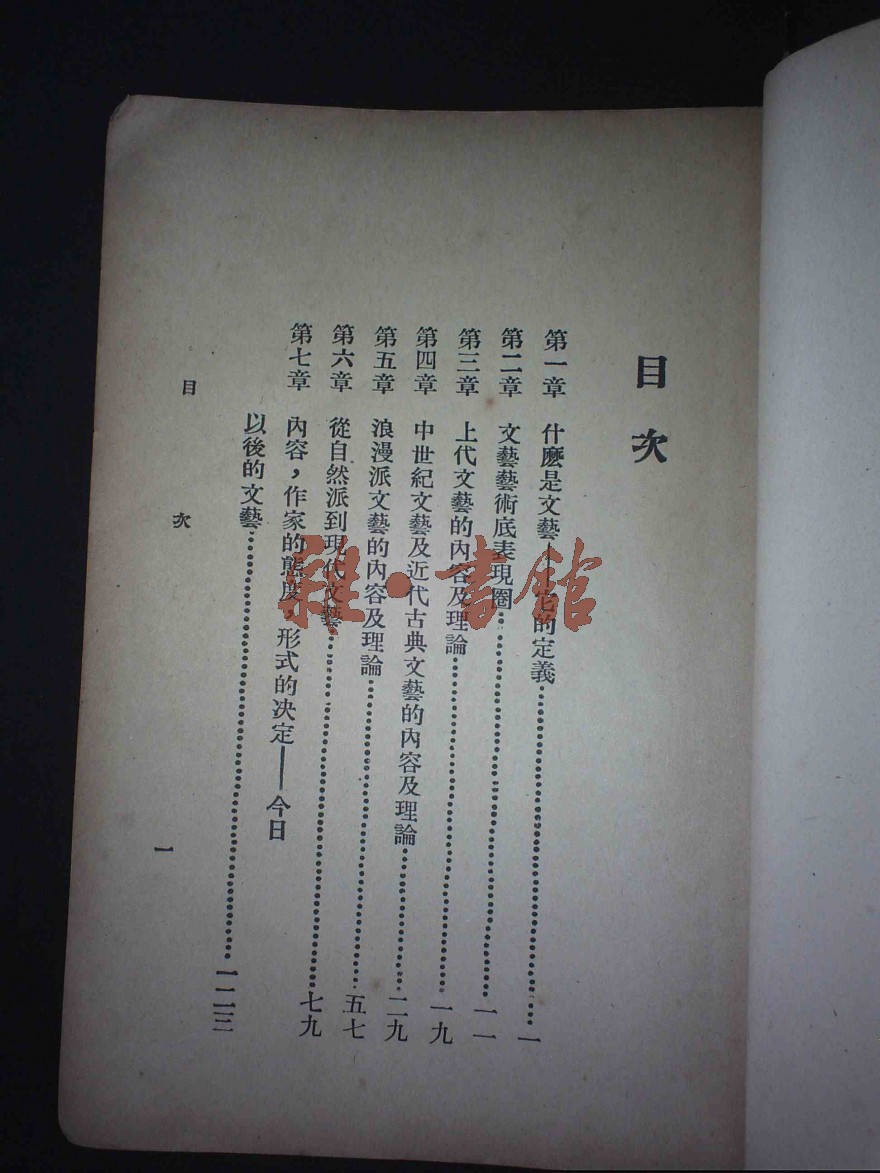 目次
第一章 什麼是文藝——它的定義……一
第二章 文藝藝術底表現圈……一一
第三章 上代文藝的內容及理論……一九
第四章 中世紀文藝及近代古典文藝的內容及理論……二九
第五章 浪漫派文藝的內容及理論……五七
第六章 從自然派到現代文藝……七九
第七章 內容，作家的態度，形式的決定——今日
以後的文藝……一二三
目次
一
雜·書館